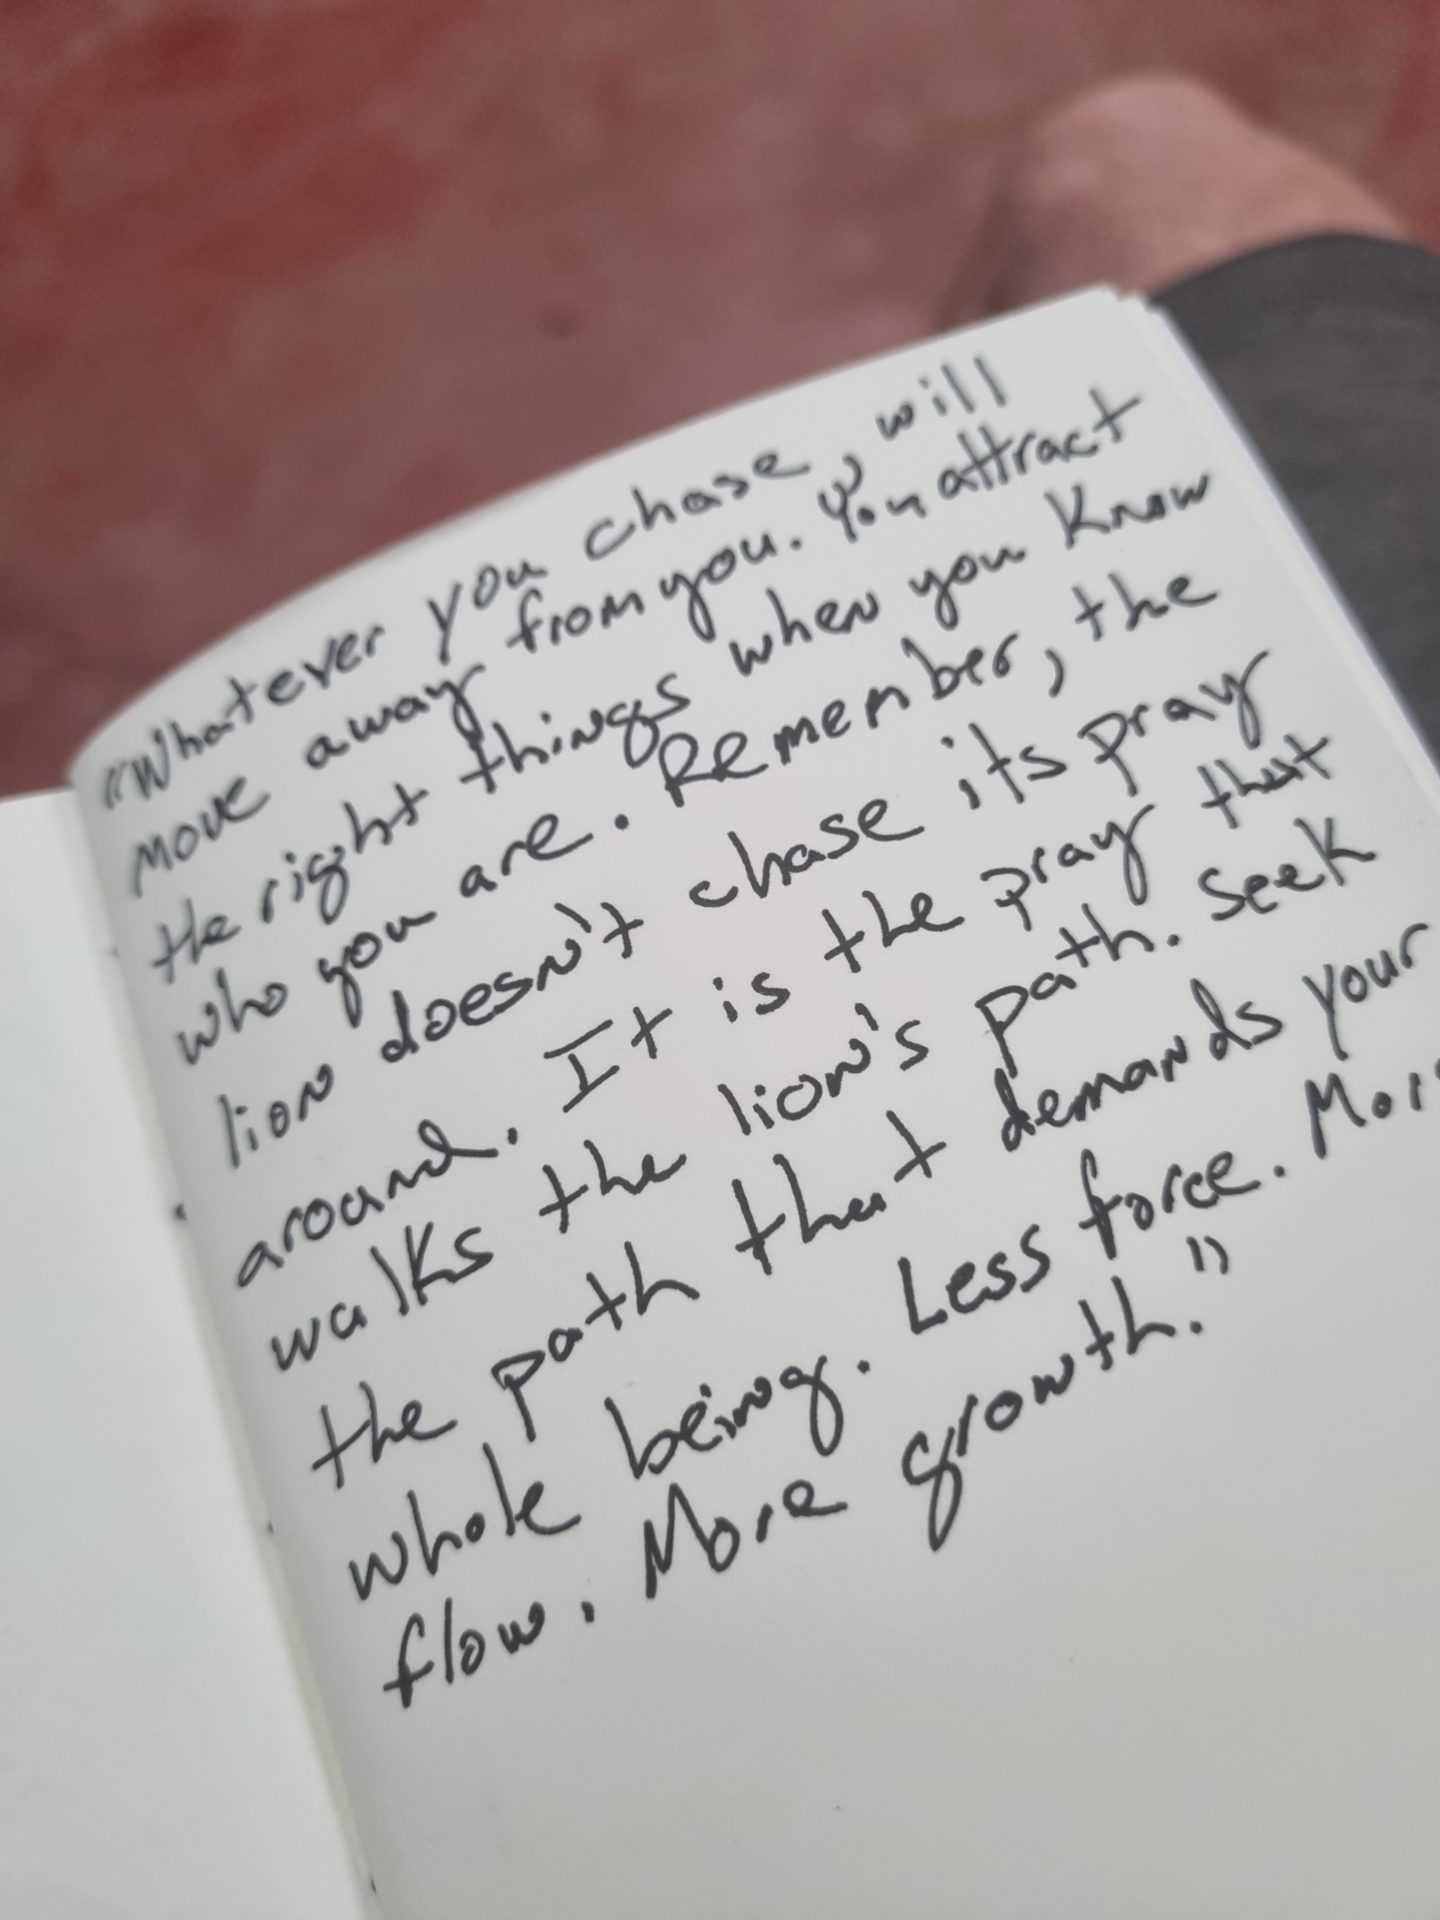 "Whatever you chase, will
move away from you. You attract
the right things when you know
who you are. Remember, the
lion doesn't chase its pray
around. It is the pray that
walks the lion's path. Seek
the path that demands your
whole being. Less force. Mor
flow. More growth."